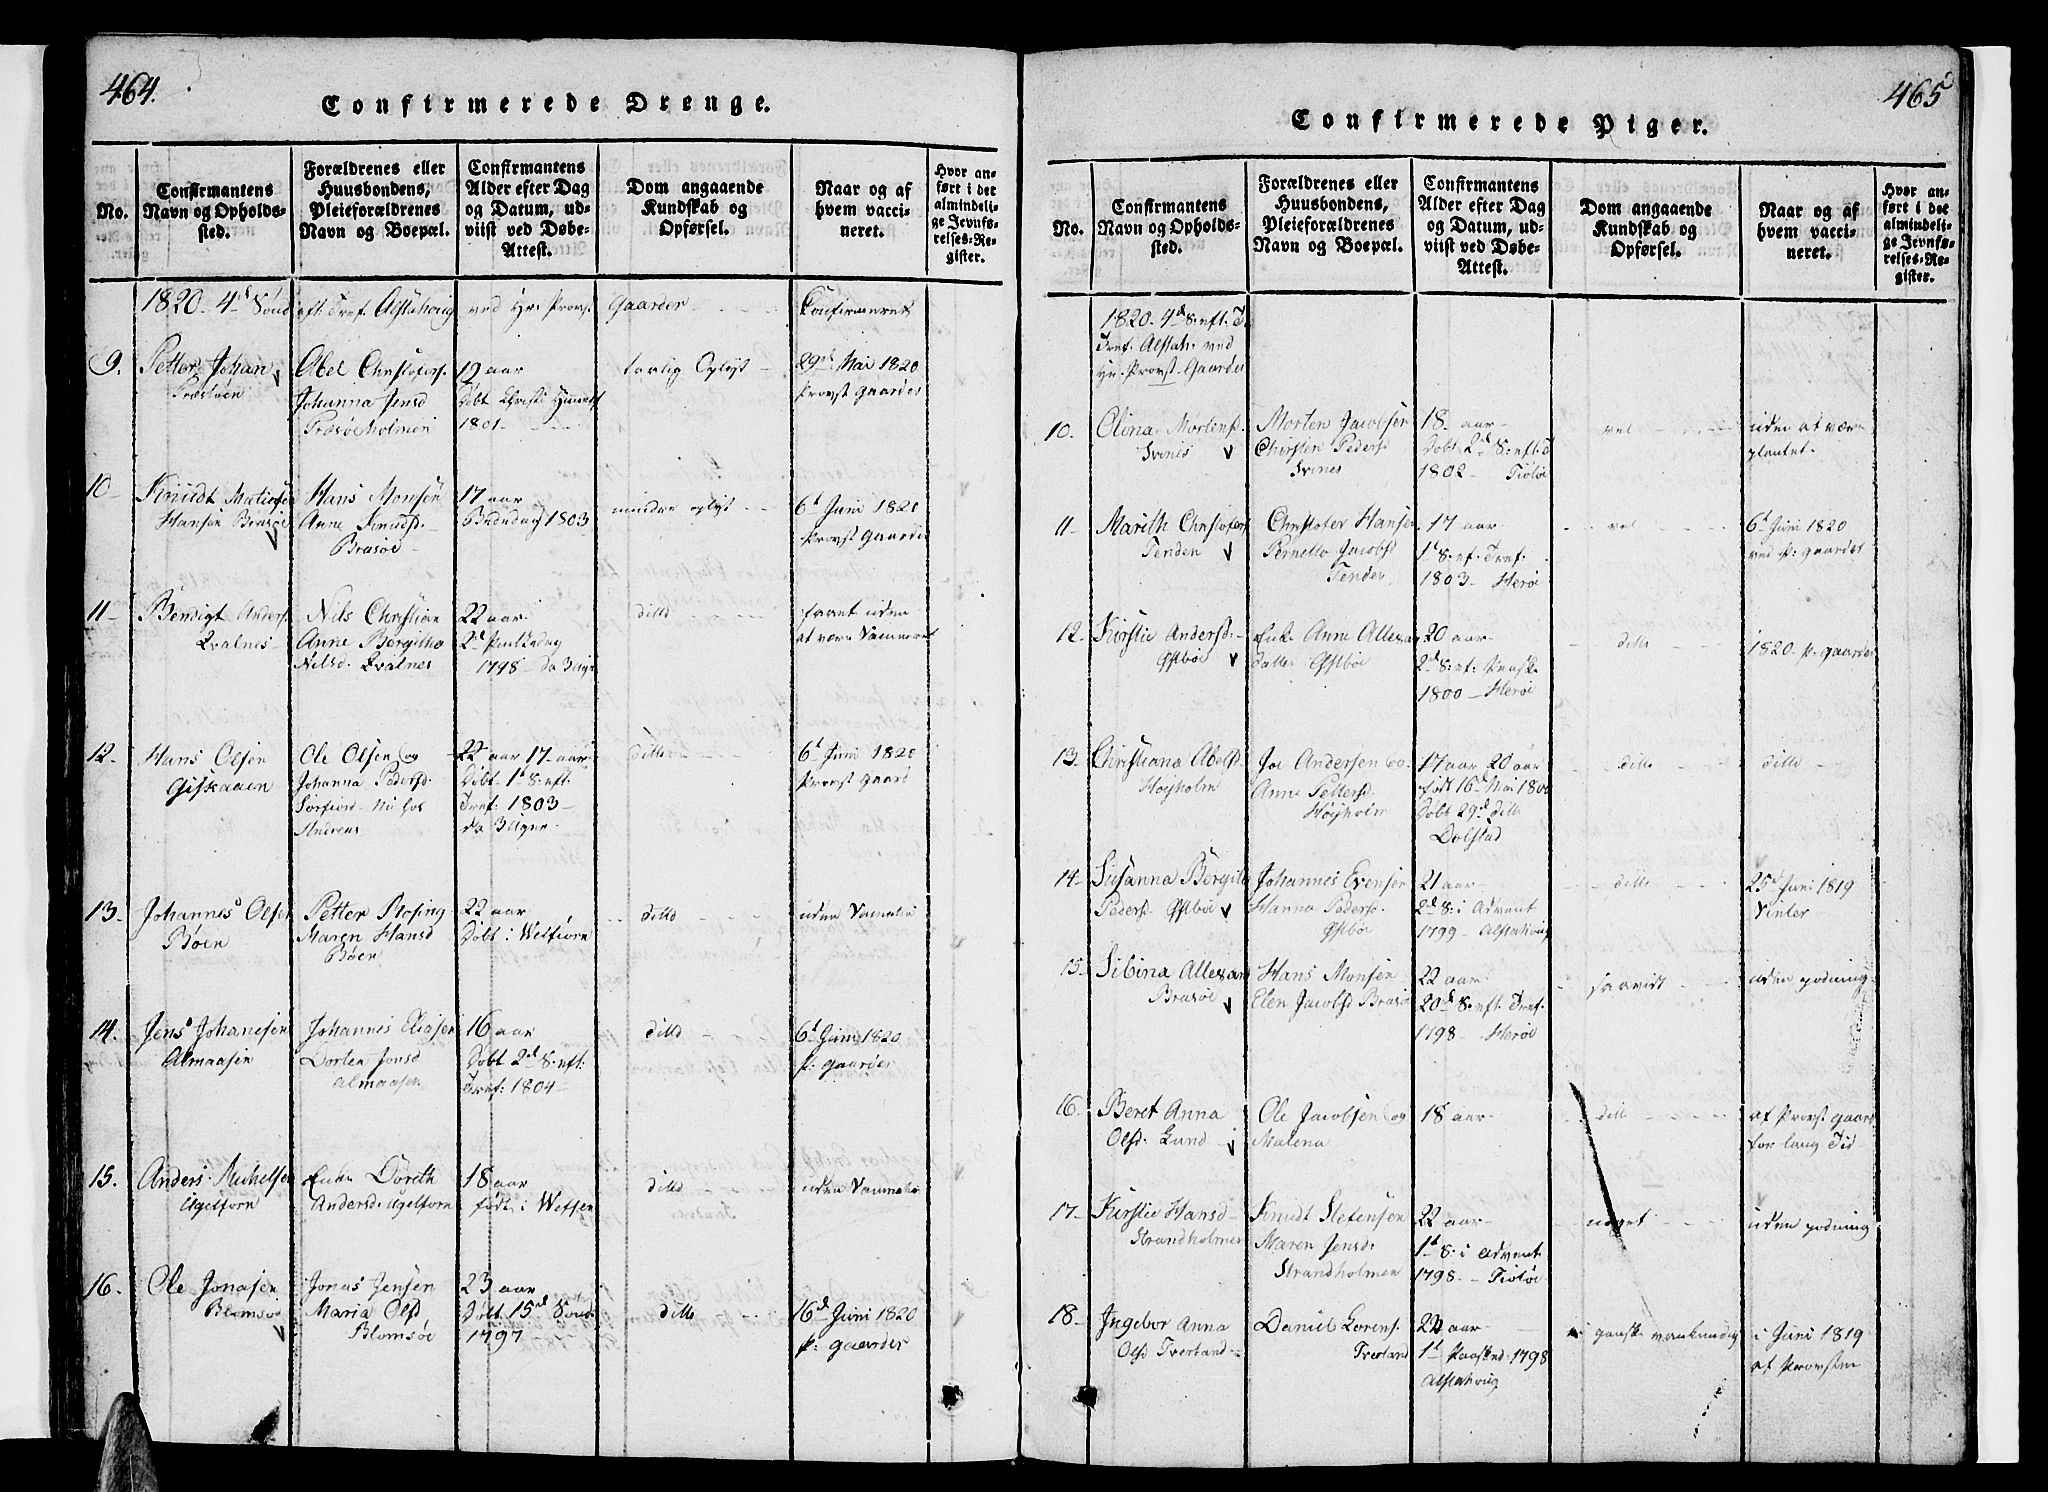 464.
Confirmerede Drenge.
No.
Confirmantens
Navn og Opholds-
sted.
Forældrenes eller
Huusbondens,
Pleieforældrenes
Navn og Boepæl.
Confirmantens
Alder efter Dag
og Datum, ud-
viist ved Døbe-
Attest.
Dom angaaende
Kundskab og
Opførsel.
Naar og af
hvem vacci-
neret.
Hvor an-
ført i det
almindeli-
ge Jevnfø-
relses-Re-
gister.
1820 4d Sønd eft: Tref. Alstahoug ved Hr Provst Gaarder Confirmeret
9.
Petter Johan
Abel Christophers.
Johanna Jensd
19 aar
Døbt Christi Himmelf
1801
tarlig Oplyst
29d Mai 1820
Provst Gaarder
10
Knudt Matiesen
Hansen Brasøe
Hans Monsen
Anne Knudsd.
Brasøe
17 aar
Bededag 1803
mindre oplyst
6d Juni 1820
Provst Gaarder
11
Bendigt Anders.
Qvalnes
Nils Christian
Anne Bergitha
Nilsd. Qvalnes
22 aar
2d Pintsedag
1798
ditto
uden
at være
12.
Hans Olsen
Giskaaen
Ole Olsen og
Johanna Pedersd.
Sørfiord Nu hos
Andreas
22 aar 17 aar
Døbt 1d S: eft.
Tref: 1803
ditto
6d Juni 1820
Provst Gaard
13.
Johannes Olsen
Bøen
Petter Rosing
Maren Hansd
Bøen
22 aar
Døbt i Welfiorn
ditto
uden
14.
Jens Johanesen
Almaasen
Johannes Eliasen
Dorten Jonsd
Almaasen
16 aar
Døbt 2d S: eft:
Tref: 1804
ditto
6d Juni 1820
P: Gaarder
15.
Anders Michelsen
Agelforn
Enke Dorith
Andersd: Agelforn
18 aar
født i Wefsen
ditto
uden
16.
Ole Jonasen
Blomsøe
Jonas Jensen
Maria Olsd
Blomsøe
23 aar
Døbt 15d Sønd:
1797
ditto
16d Juni 1820
P: Gaarder
465
Confirmerede Piger.
No.
Confirmantens
Navn og Opholds-
sted.
Forældrenes eller
Huusbondens,
Pleieforældrenes
Navn og Boepæl.
Confirmantens
Alder efter Dag
og Datum, ud-
viist ved Døbe-
Attest.
Dom angaaende
Kundskab og
Opførsel.
Naar og af
hvem vacci-
neret.
Hvor an-
ført i det
almindeli-
ge Jevnfø-
relses-Re-
gister.
1820. 4d S: eft. T
Tref. Alstah. ved
Hr. Provst Gaarder
10.
Olina Mortensd.
Svines
Morten Jacobsen
Chirsten Pedersd
Svines
18 aar
Døbt 2d S: eft: T
1802 Tiøtøe
vel
uden at være
plantet.
11
Marith Christofers
Tenden
Christofer Hansen
Pernella Jacobsd
Tenden
17 aar
1d S: ef: Tref:
1803 Herøe
vel
6d Juni 1820
ved P: Gaarder
12
Kirstie Andersd:
Østbøe
Enke Anne Allexan
datter Østbøe
20 aar
2d S: ef: Paaske
1800 Herøe
ditto
1820 P. Gaarder
13
Christiana Abelsd
Høyholm
Joe Andersen og
Anne Pettersd
Høyholm
17 aar 20 aar
født 16d Mai 1800
Døbt 29d ditto
Dolstad
ditto
ditto
14
Susanna Bergite
Pedersd Østbøe
Johannes Evensen
Hanna Pedersd.
Østbøe
21 aar
2d S: i Advent
1799 Alstahoug
ditto
25d Juni 1819
Vinter
15
Sibina Allexan
Brasøe
Hans Monsen
Elen Jacobsd Brasøe
22 aar
20d S: eft. Tref:
1798 Herøe
saavidt
uden podning
16
Beret Anna
Olsd: Lund
Ole Jacobsen og
Malena
18 aar
ditto
af Provst Gaard
for lang Tid
17
Kirstie Hansd
Strandholmen
Knudt Stefensen
Maren Jensd:
Strandholmen
22 aar
1d S: i Advent
1798 Tiøtøe
noget
uden podning
18
Ingebor Anna
Olsd Tverland
Daniel Lorens.
Tverland
22 aar
1d Paaskd: 1798
Alstahoug
ganske vankundig
i Juni 1819
af Provsten